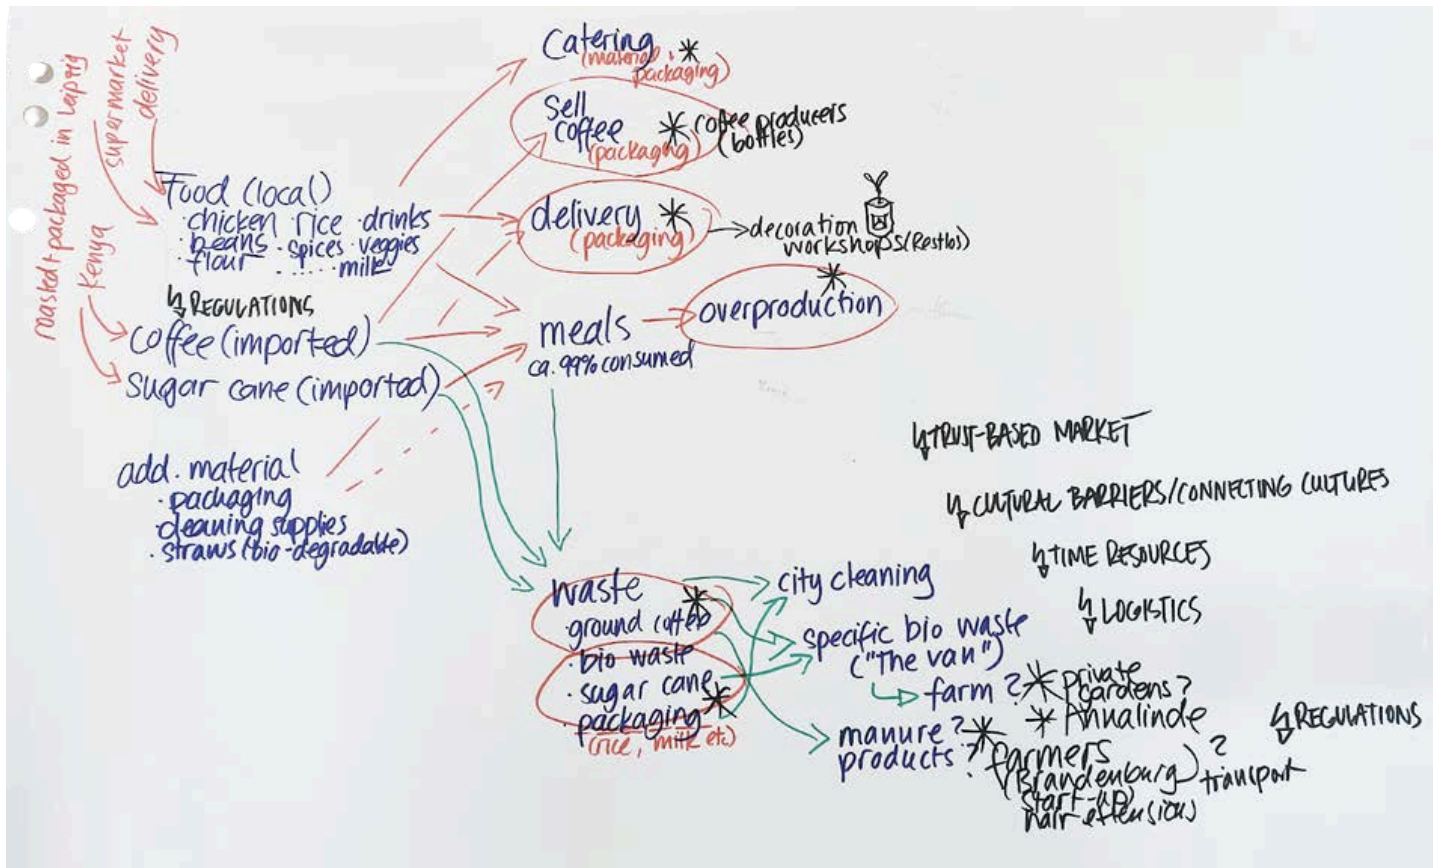 roasted + packaged in Leipzig
Kenya
supermarket
delivery
Food (local)
· chicken · rice · drinks
· beans · spices · veggies
· flour ...... milk
REGULATIONS
coffee (imported)
sugar cane (imported)
add. material
· packaging
· cleaning supplies
· straws (bio-degradable)
Catering
(material + packaging)
sell
coffee
(packaging)
coffee producers
(bottles)
delivery
(packaging)
decoration
workshops (Restlos)
meals
ca. 99% consumed
overproduction
waste
· ground coffee
· bio waste
· sugar cane
packaging
(rice, milk etc)
city cleaning
specific bio waste
("The van")
farm ?
private
gardens?
Annalinde
manure ?
products ?
farmers
(Brandenburg)
start-up
hair extensions
?
transport
TRUST-BASED MARKET
CULTURAL BARRIERS/CONNECTING CULTURES
TIME RESOURCES
LOGISTICS
REGULATIONS